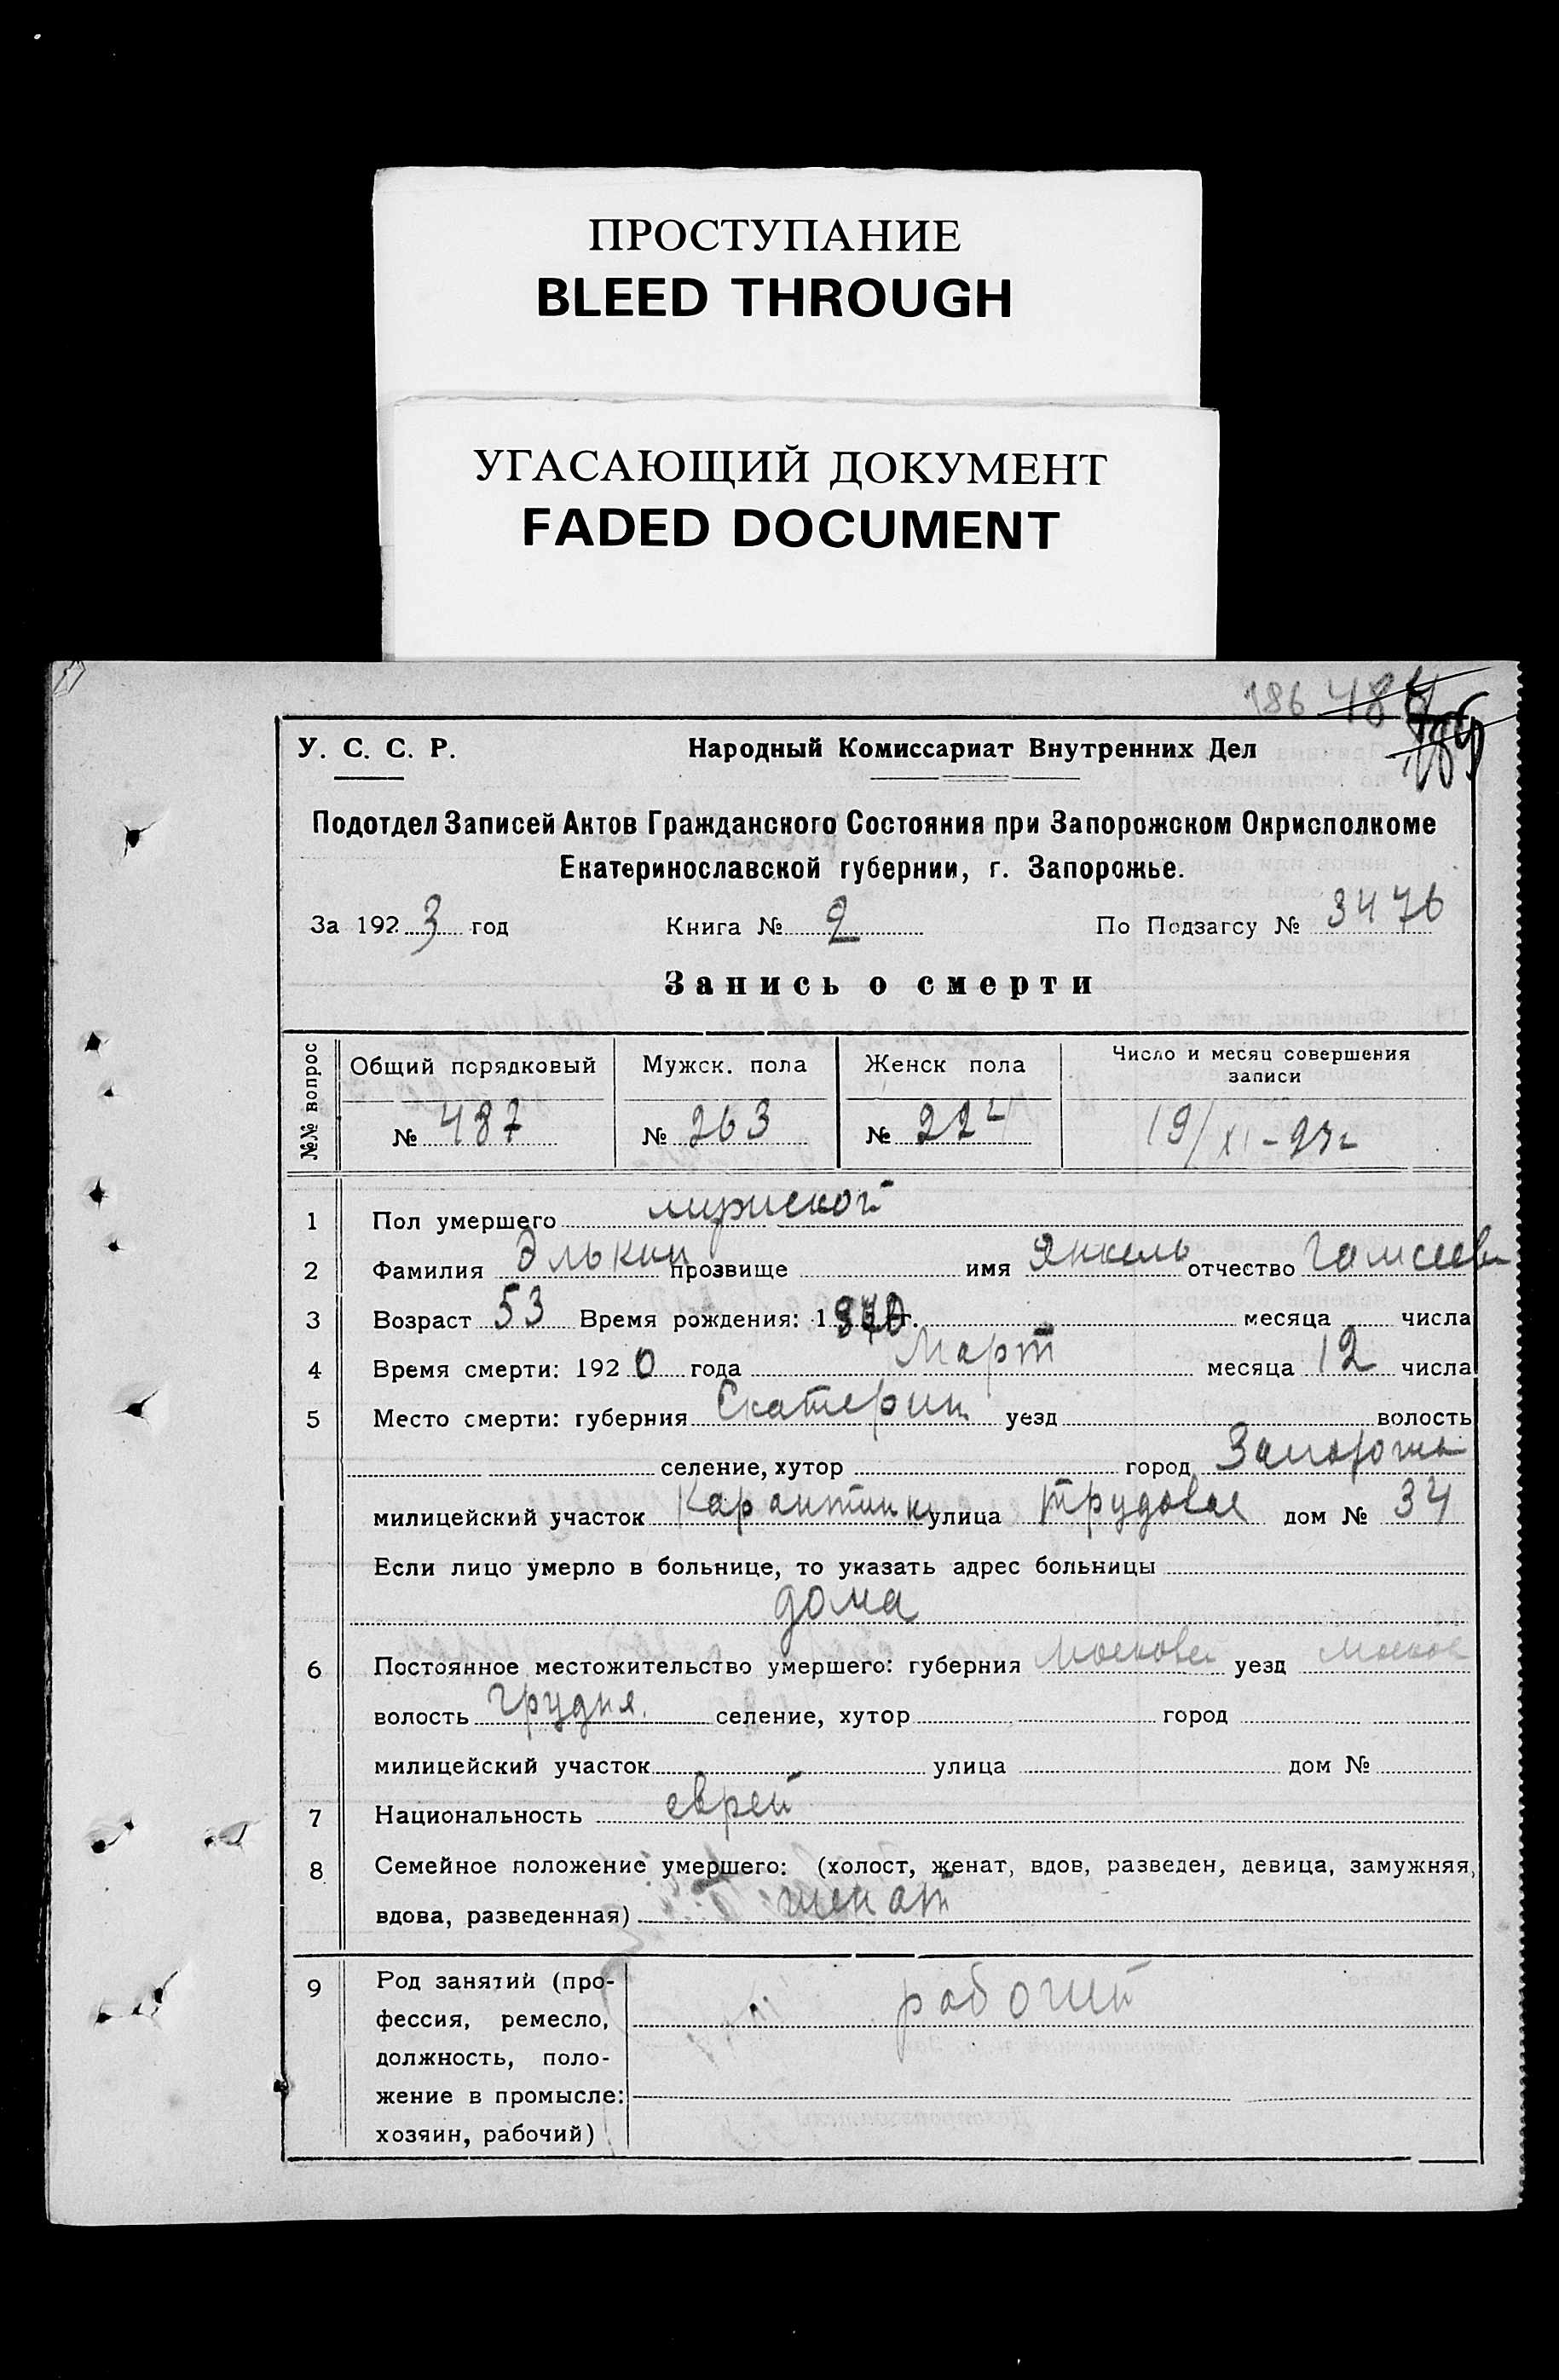 ПРОСТУПАНИЕ
BLEED THROUGH
УГАСАЮЩИЙ ДОКУМЕНТ
FADED DOCUMENT
186
У. С. С. Р. Народный Комиссариат Внутренних Дел
Подотдел Записей Актов Гражданского Состояния при Запорожском Окрисполкоме
Екатеринославской губернии, г. Запорожье.
За 1923 год Книга № 2 По Подзагсу № 3476
Запись о смерти
№№ вопрос Общий порядковый Мужск. пола Женск пола Число и месяц совершения
записи
№ 487 № 263 № 224 19/XI-23г
1 Пол умершего мужской
2 Фамилия Элькин прозвище имя Янкель отчество
3 Возраст 53 Время рождения: 1 г. месяца числа
4 Время смерти: 1920 года Март месяца 12 числа
5 Место смерти: губерния Екатерин уезд волость
селение, хутор город Запорожье
милицейский участок Карантинн улица Трудовая дом № 34
Если лицо умерло в больнице, то указать адрес больницы
дома
6 Постоянное местожительство умершего: губерния уезд
волость селение, хутор город
милицейский участок улица дом №
7 Национальность еврей
8 Семейное положение умершего: (холост, женат, вдов, разведен, девица, замужняя,
вдова, разведенная) женат
9 Род занятий (про-
фессия, ремесло, рабочий
должность, поло-
жение в промысле:
хозяин, рабочий)